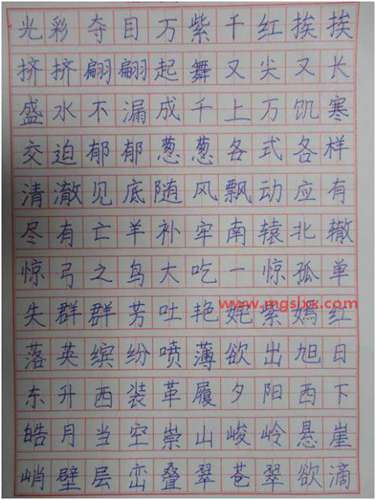 光彩夺目万紫千红挨挨
挤挤翩翩起舞又尖又长
盛水不漏成千上万饥寒
交迫郁郁葱葱各式各样
清澈见底随风飘动应有
尽有亡羊补牢南辕北辙
惊弓之鸟大吃一惊孤单
www.mgslxx.com
失群群芳吐艳姹紫嫣红
落英缤纷喷薄欲出旭日
东升西装革履夕阳西下
皓月当空崇山峻岭悬崖
峭壁层峦叠翠苍翠欲滴